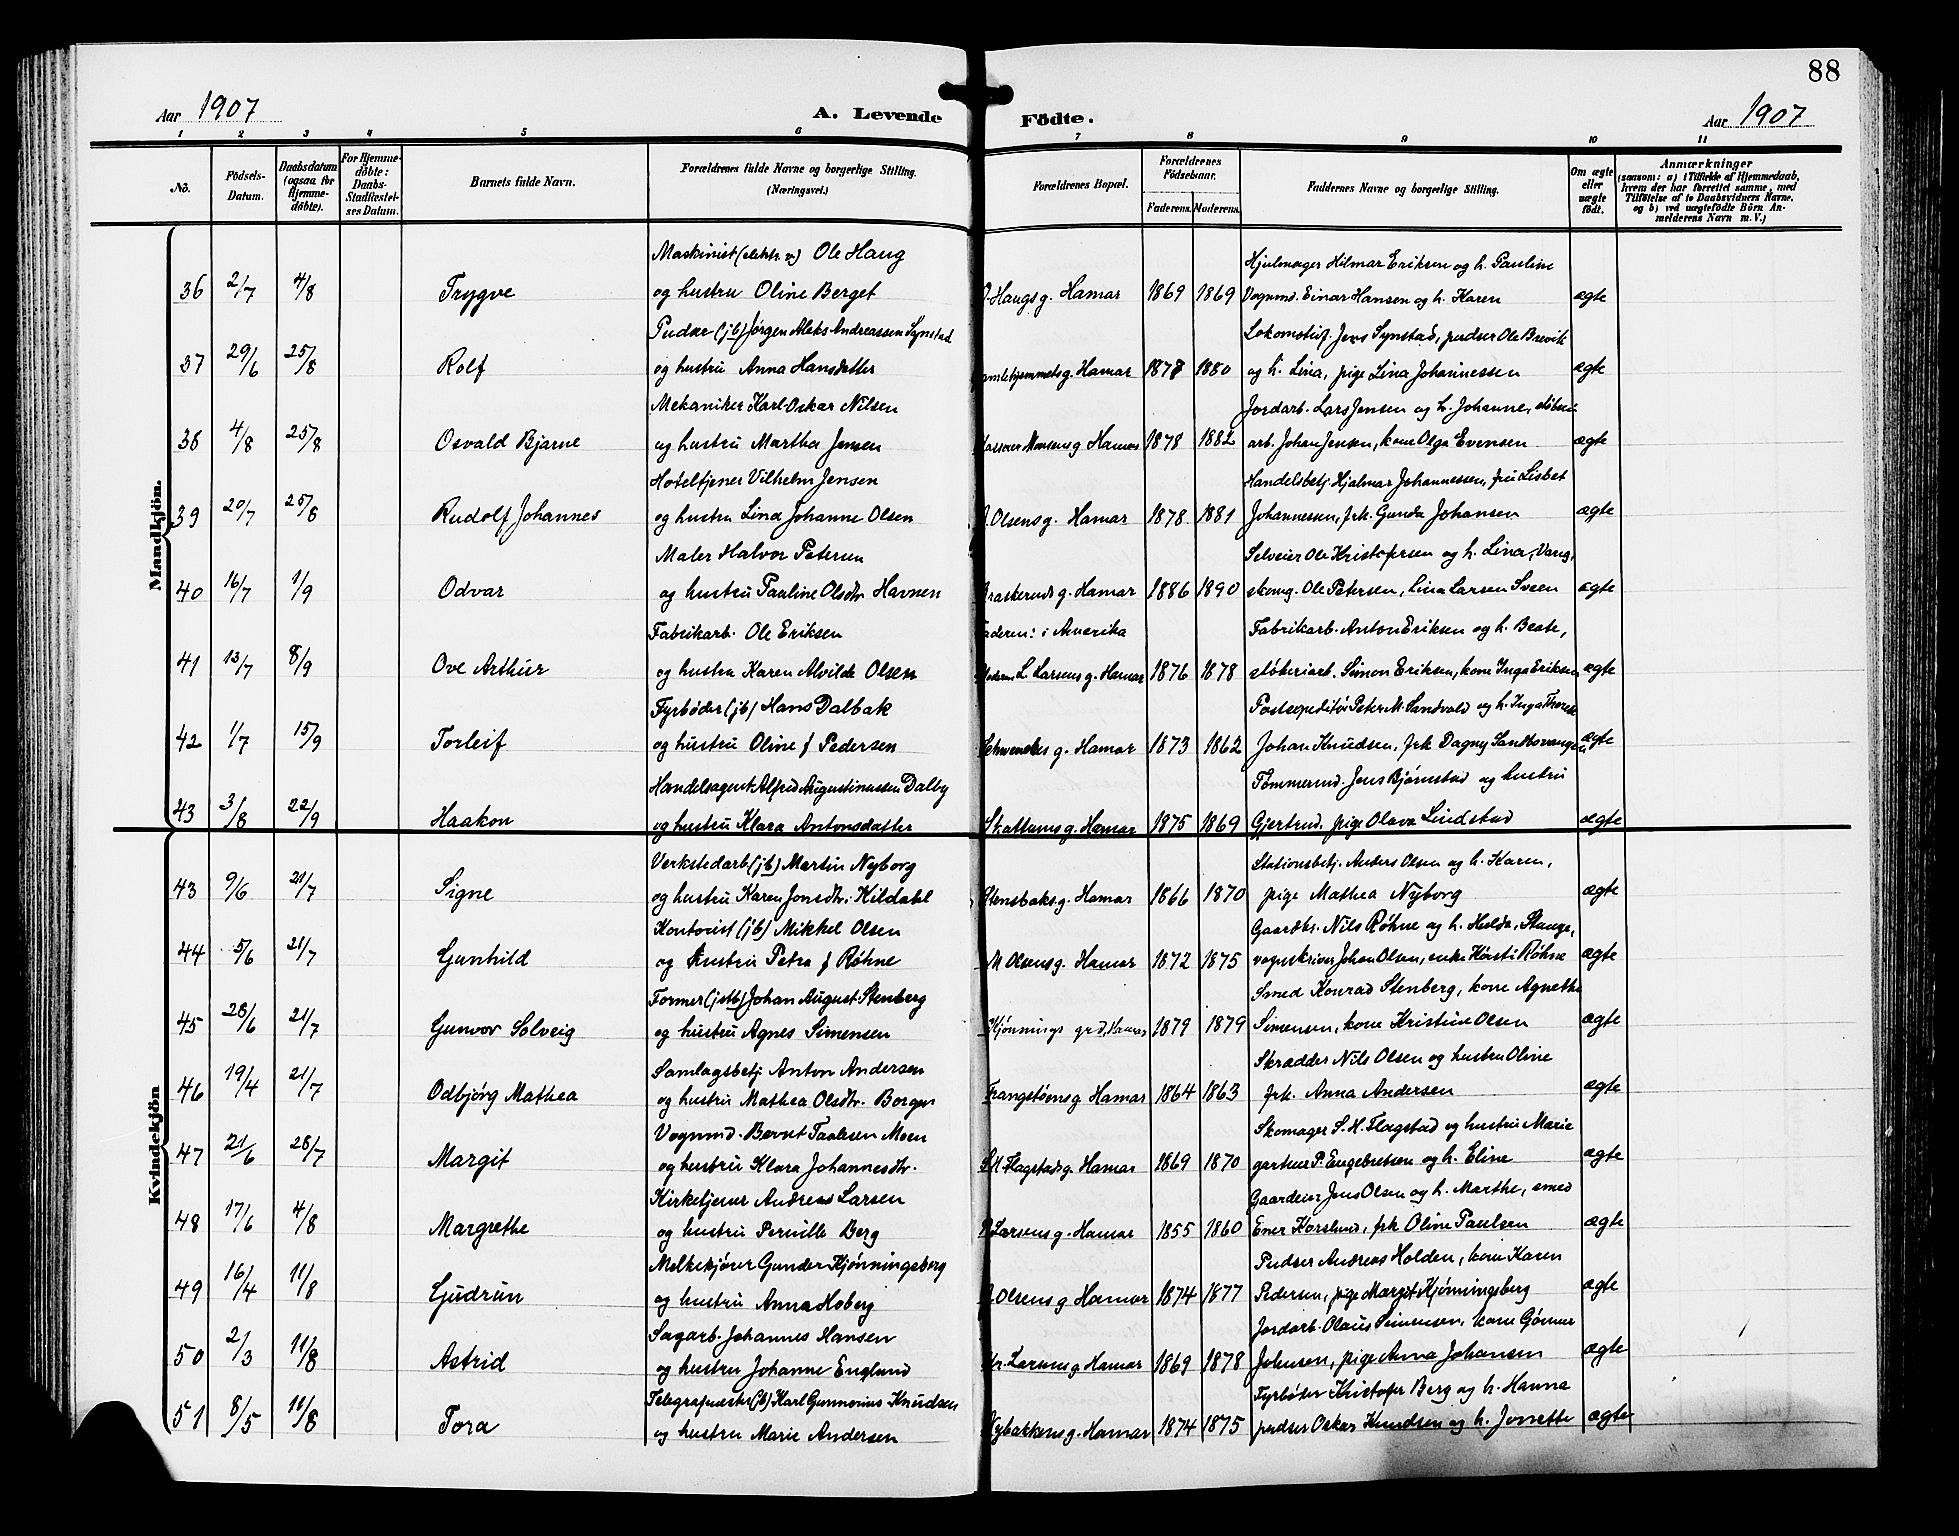 88
Aar 1907 A. Levende Födte. Aar 1907
1 2 3 4 5 6 7 8 9 10 11
No. Födsels-Datum. Daabsdatum (ogsaa for Hjemme-döbte). For Hjemme-döbte: Daabs-Stadfæstel-ses Datum. Barnets fulde Navn. Forældrenes fulde Navne og borgerlige Stilling. (Næringsvei.) Forældrenes Bopæl. Forældrenes Födselsaar. Faderens. Moderens. Faddernes Navne og borgerlige Stilling. Om ægte eller uægte födt. Anmærkninger (saasom: a) i Tilfælde af Hjemmedaab, hvem der har forrettet samme, med Tilföielse af to Daabsvidners Navne, og b) ved uægtefödte Börn An-melderens Navn m. V.)
Mandkjön.
Maskinist (elektr. v) Ole Haug Hjulmager Hilmar Eriksen og h. Pauline
36 2/7 4/8 Trygve og hustru Oline Berget O. Haugs g. Hamar 1869 1869 Vognmd. Einar Hansen og h. Karen ægte
Pudser (jb) Jørgen Aleks Andreassen Synstad Lokomotivf. Jens Synstad, pudser Ole Brevik
37 29/6 25/8 Rolf og hustru Anna Hansdatter Gamlehjemmets g. Hamar 1878 1880 og h. Lina, pige Lina Johannessen ægte
Mekaniker Karl Oskar Nilsen Jordarb. Lars Jensen og h. Johanne, støberi
38 4/8 25/8 Osvald Bjarne og hustru Martha Jensen g Hamar 1878 1882 arb. Johan Jensen, kone Olga Evensen ægte
Hoteltjener Vilhelm Jensen Handelsbetj. Hjalmar Johannessen, fru Lisbet
39 20/7 25/8 Rudolf Johannes og hustru Lina Johanne Olsen Olsens g. Hamar 1878 1881 Johannessen, frk. Gunda Johansen ægte
Maler Halvor Petersen Selveier Ole Kristofersen og h. Lina, Vang,
40 16/7 1/9 Odvar og hustru Pauline Olsdtr. Havnen Braskeruds g. Hamar 1886 1890 skomg. Ole Petersen, Lina Larsen Sveen ægte
Fabrikarb. Ole Eriksen Faderen: i Amerika Fabrikarb. Anton Eriksen og h. Beate,
41 13/7 8/9 Ove Arthur og hustru Karen Alvilde Olsen Moderen L. Larsens g. Hamar 1876 1878 støberiarb. Simon Eriksen, kone Inga Eriksen ægte
Fyrbøder (jb) Hans Dalbak Postexpeditör Peter M. Sandvold og h. Inga Therese
42 1/7 15/9 Torleif og hustru Oline f Pedersen Schwenckes g. Hamar 1873 1862 Johan Knudsen, frk Dagny Sandbovangen ægte
Handelsagent Alfred Augustinussen Dalby Tømmermd. Jens Bjørnstad og hustru
43 3/8 22/9 Haakon og hustru Klara Antonsdatter Skattums g. Hamar 1875 1869 Gjertrud, pige Olava Lindstad ægte
Kvindekjön
Verkstedarb (jb) Martin Nyborg Stationsbetj. Anders Olsen og h. Karen,
43 9/6 21/7 Signe og hustru Karen Jonsdtr. Kildahl Stensbaks g. Hamar 1866 1870 pige Mathea Nyborg ægte
Kontorist (jb) Mikkel Olsen Gaardbr. Nils Røhne og h. Hulda, Stange,
44 5/6 21/7 Gunhild og hustru Petra f Røhne M Olsens g. Hamar 1872 1875 vognskriver Johan Olsen, enke Kersti Røhne ægte
Former (jstb) Johan August Stenberg Smed Konrad Stenberg, kone Agnethe
45 28/6 21/7 Gunvor Solveig og hustru Agnes Simensen Kjønnings grd, Hamar 1879 1879 Simensen, kone Kristine Olsen ægte
Samlagsbetj Anton Andersen Skrædder Nils Olsen og hustru Oline
46 19/4 21/7 Odbjørg Mathea og hustru Mathea Olsdtr. Borgen Frangstøens g Hamar 1864 1863 frk. Anna Andersen ægte
Vognmd. Bernt Paulsen Moen Skomager S. H. Flagstad og hustru Marie
47 21/6 28/7 Margit og hustru Klara Johannesdtr. S.H. Flagstads g. Hamar 1869 1870 gartner P. Engebretsen og h. Eline ægte
Kirketjener Andreas Larsen Gaardeier Jens Olsen og h. Marthe, smed
48 17/6 4/8 Margrethe og hustru Pernille Berg Larsens g. Hamar 1855 1860 Ener Korslund, frk Oline Paulsen ægte
Melkekjører Gunder Kjønningsberg Pudser Andreas Holden, kone Karen
49 16/4 11/8 Gudrun og hustru Anna Hoberg Olsens g Hamar 1874 1877 Pedersen, pige Margit Kjønningsberg ægte
Sagarb. Johannes Hansen Jordarb. Olaus Simensen, kone Gønner
50 2/3 11/8 Astrid og hustru Johanne Englund Kr Larsens g Hamar 1869 1878 Johnsen, pige Anna Johansen ægte
Telegrafmester (jb) Karl Gunnarius Knudsen Fyrbøter Kristofer Berg og h. Hanna
51 8/5 11/8 Tora og hustru Marie Andersen Nybakkens g. Hamar 1874 1875 pudser Oskar Knudsen og h. Jonette ægte